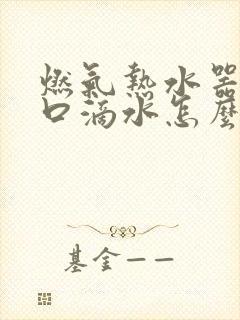 燃氣熱水器
口滴水怎麼
基金——